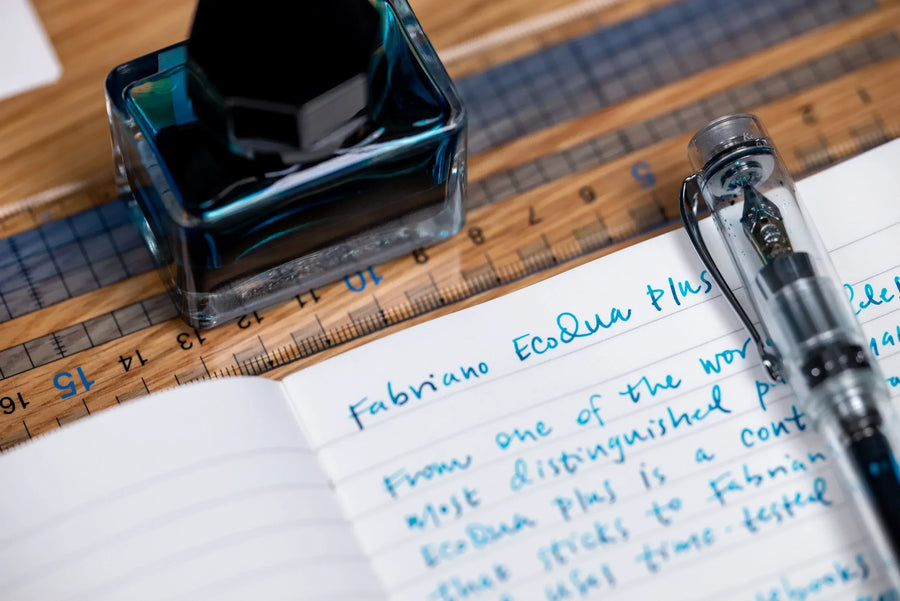 1
2
5
6
7
8
9
10
11
12
13
14
15
16
Fabriano EcoQua plus
From one of the wor
most distinguished p
EcoQua plus is a cont
that sticks to Fabrian
uses time-tested
tebooks